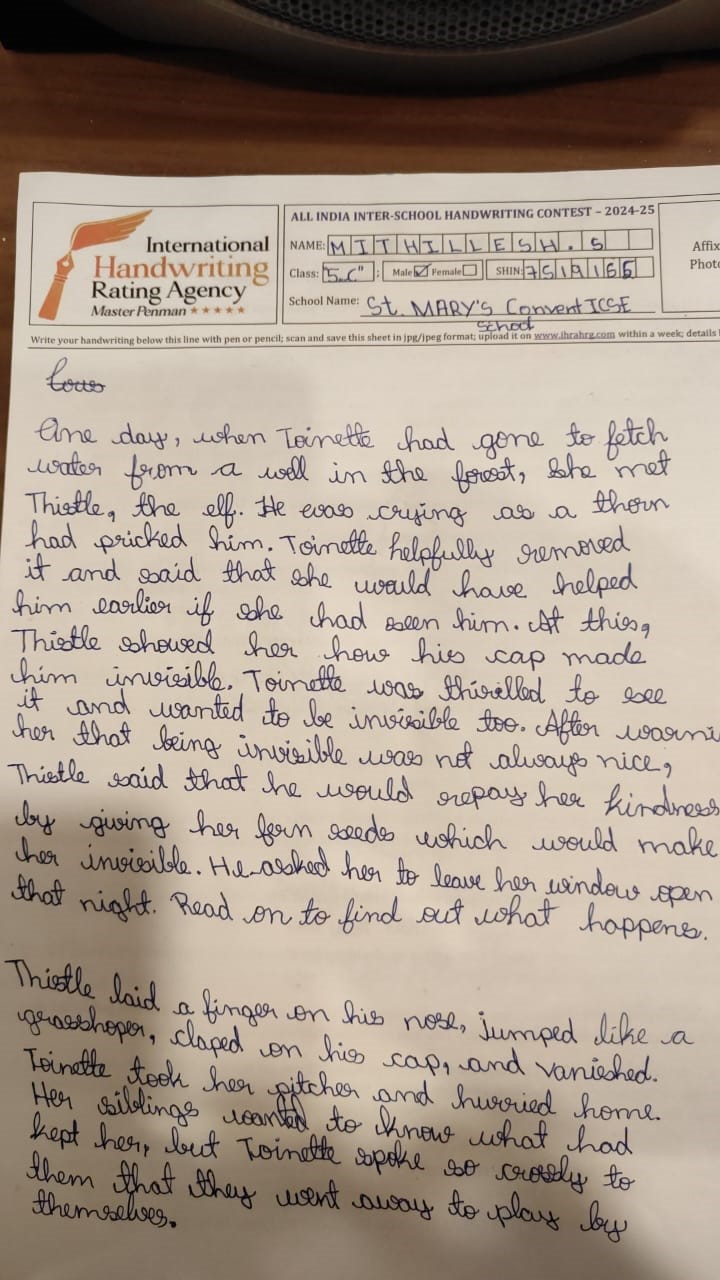 ALL INDIA INTER-SCHOOL HANDWRITING CONTEST – 2024-25
International
Handwriting
Rating Agency
Master Penman ★★★★★
NAME: MITHILLESH.S
Class: "5.C" : Male ☑ Female ☐ SHIN: 7519166
School Name: St. MARY'S Convent ICSE
School
Affix
Photo
Write your handwriting below this line with pen or pencil; scan and save this sheet in jpg/jpeg format; upload it on www.ihrahrg.com within a week; details
One day, when Toinette had gone to fetch
water from a well in the forest, she met
Thistle, the elf. He was crying as a thorn
had pricked him. Toinette helpfully removed
it and said that she would have helped
him earlier if she had seen him. At this,
Thistle showed her how his cap made
him invisible. Toinette was thrilled to see
it and wanted to be invisible too. After warni
her that being invisible was not always nice,
Thistle said that he would repay her kindness
by giving her fern seeds which would make
her invisible. He asked her to leave her window open
that night. Read on to find out what happens.
Thistle laid a finger on his nose, jumped like a
grasshoper, claped on his cap, and vanished.
Toinette took her pitcher and hurried home.
Her siblings wanted to know what had
kept her, but Toinette spoke so crossly to
them that they went away to play by
themselves.